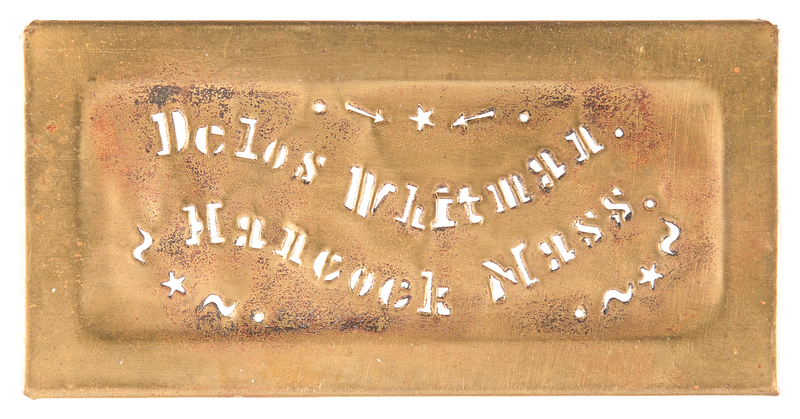 Delos Whitman.
Hancock Mass.